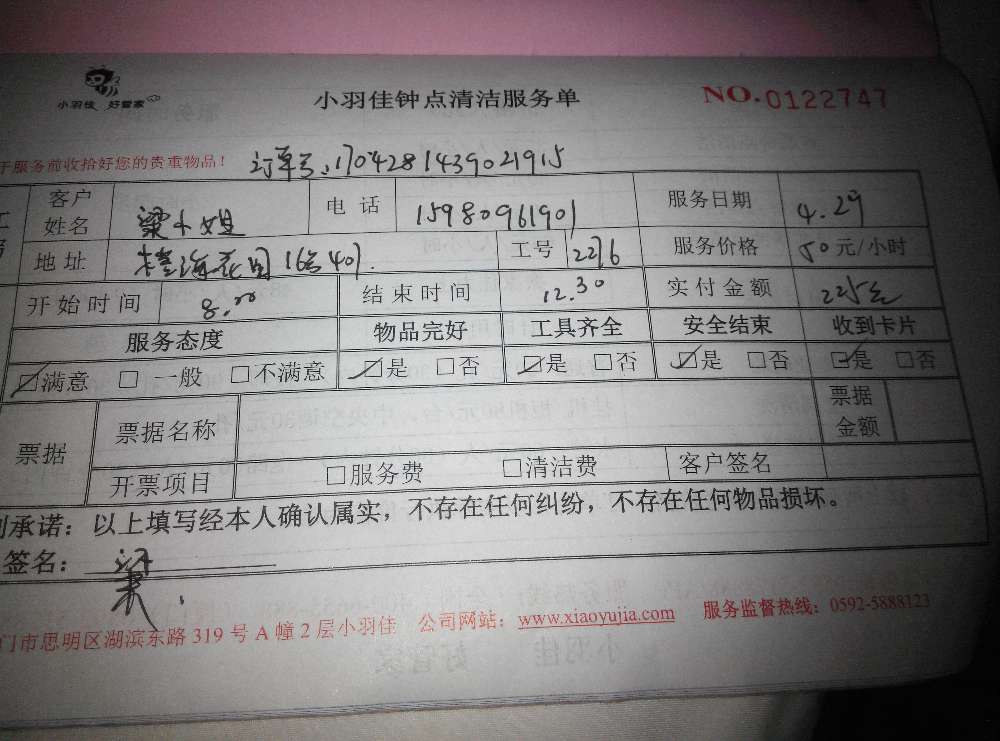 小羽佳 好管家
小羽佳钟点清洁服务单
NO.0122747
于服务前收拾好您的贵重物品！
订单号：1704281439021915
客户姓名 梁小姐 电话 15980961901 服务日期 4.29
地址 花园16号407. 工号 2276 服务价格 50元/小时
开始时间 8.00 结束时间 12.30 实付金额 225元
服务态度 物品完好 工具齐全 安全结束 收到卡片
☑满意 □一般 □不满意 ☑是 □否 ☑是 □否 ☑是 □否 ☑是 □否
票据 票据名称 票据金额
开票项目 □服务费 □清洁费 客户签名
承诺：以上填写经本人确认属实，不存在任何纠纷，不存在任何物品损坏。
签名：梁
门市思明区湖滨东路 319 号 A 幢 2 层小羽佳 公司网站：www.xiaoyujia.com 服务监督热线：0592-5888123